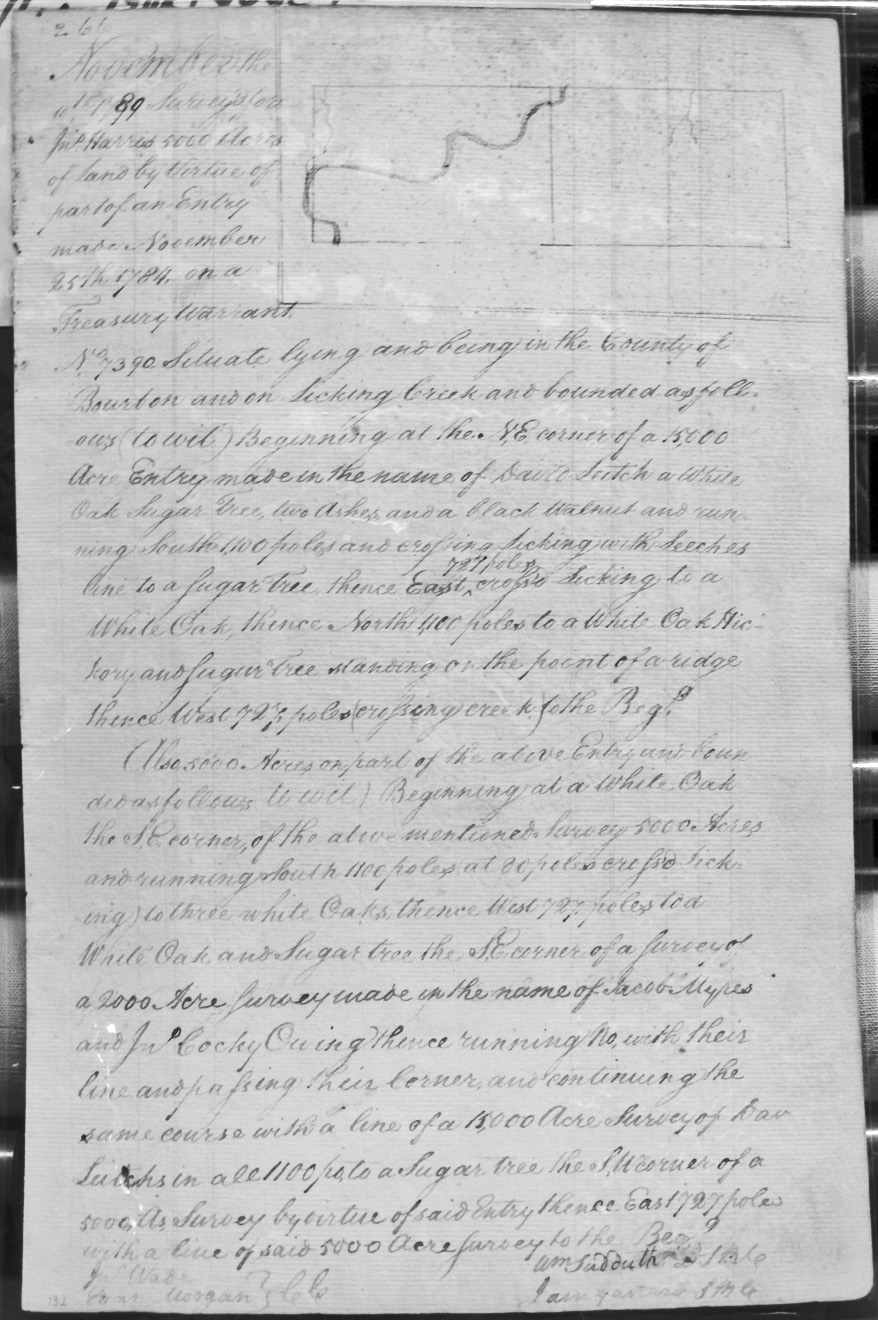 266
November the
10th 1789 Survey'd for
Jno Harris 5000 Acres
of land by Virtue of
part of an Entry
made November
25th 1784. on a
Treasury Warrant
No 7390 Situate lying and being in the County of
Bourbon and on Licking Creek and bounded as foll-
ows (to wit) Beginning at the N,E corner of a 15,000
Acre Entry made in the name of David Leitch a White
Oak Sugar Tree, two Ashes and a black Walnut and run-
ning South 1,100 poles and crossing Licking with Leeches
727 poles
line to a Sugar tree, thence East, ^ cross'd Licking to a
White Oak, thence North 1,100 poles to a White Oak Hic-
kory and Sugar tree standing on the point of a ridge
thence West 727, poles (crossing creek) to the Beg.g
(Also, 5000. Acres on part of the above Entry and boun
ded as follows to wit) Beginning at a White Oak
the S.E. corner, of the above mentioned Survey 5000 Acres
and running South 1100 poles at 80 poles cross'd Lick-
ing) to three white Oaks, thence West 727, poles to a
White Oak, and Sugar tree the S,E corner of a Survey of
a 2000 Acre Survey made in the name of Jacob Myres
and Jno Cocky Owing thence running No, with their
line and passing their corner, and continuing the
same course with a line of a 15,000 Acre Survey of Dav
Leitchs in all 1100 po, to a Sugar tree the S,W corner of a
5000, As, Survey by virtue of said Entry thence East 727 poles
with a line of said 5000 Acre Survey to the Beg.g
Wm Sudduth
Jno Wade
Evan Morgan } C C
132